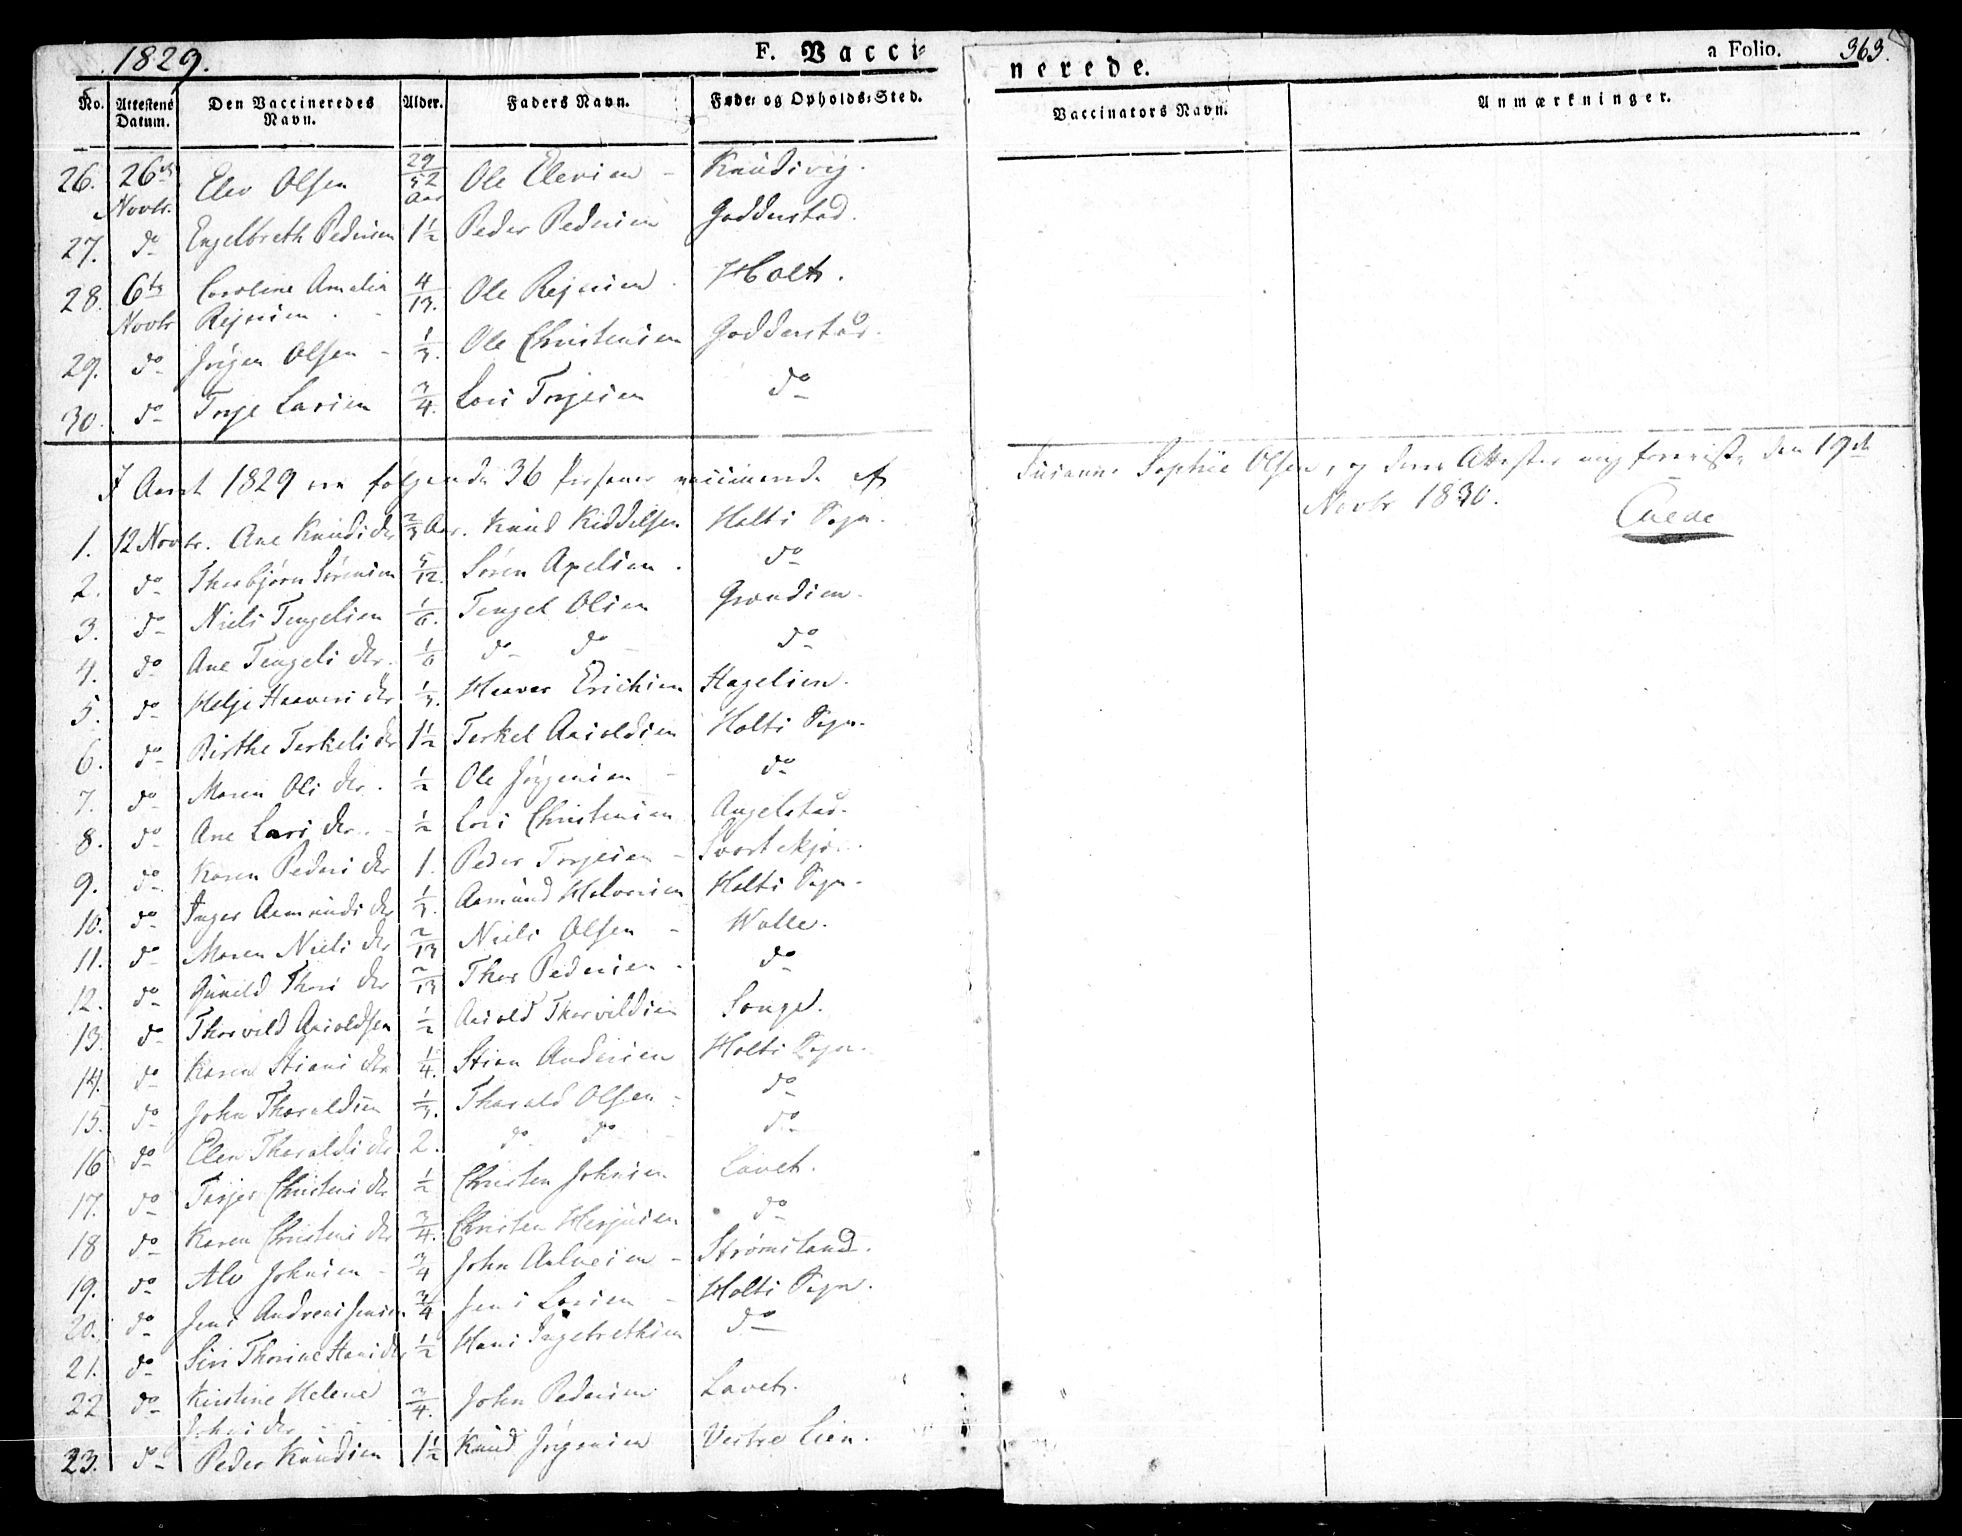 1829.
F. Vacci-
nerede.
a Folio. 363.
No. Attestens Datum. Den Vaccineredes Navn. Alder. Faders Navn. Føde- og Opholds-Sted. Vaccinators Navn. Anmærkninger.
26. 26de Novbr. Elev Olsen 29/52 Aar Ole Elevsen - Knudsvig.
27. do Engelbreth Pedersen 1½ Peder Pedersen Godderstad.
28. 6te Novbr Caroline Amelia 4/13. Ole Rejersen. Holt.
Rejersen. -
29. do Jørgen Olsen - 1/3. Ole Christensen Godderstad.
30. do Torje Larsen 3/4. Lars Torjesen do
I Aaret 1829 ere følgende 36 Personer vaccinerede af Susanne Sophie Olsen, og deres Attester mig foreviste den 19de
Novbr 1830.
1. 12 Novbr. Ane Knudsdr 2/3 Aar. Knud Kiddelsen Holts Sogn.
2. do Thorbjørn Sørensen 5/12. Søren Axelsen. do
3. do Niels Tengelsen 1/6. Tengel Olsen Grondsen.
4. do Ane Tengelsdr. 1/6 do do do
5. do Helje Haaversdr 1/3. Haaver Erichsen Hagelien.
6. do Birthe Terkelsdr 1½ Terkel Aasoldsen Holts Sogn.
7. do Maren Olsdr. ½ Ole Jørgensen - do
8. do Ane Larsdr. - ½ Lars Christensen Angelstad.
9. do Karen Pedersdr 1. Peder Torjesen -
10. do Inger Asmundsdr 1/3. Aasmund Halvorsen Holts Sogn.
11. do Maren Nielsdr 2/13 Niels Olsen - Walle.
12. do Gunild Thorsdr 2/13 Thor Pedersen. do
13. do Thorvild Aasoldsen ½ Aasold Thorvildsen Songe.
14. do Karen Stiansdr ¼. Stian Andersen Holts Sogn.
15. do John Thoraldsen 1/3. Thorald Olsen - do
16 do Elen Thoraldsdr 2. do do do
17. do Torjer Christensdr ½ Christen Johnsen Lavet.
18 do Karen Christensdr 3/4. Christen Herjusen do
19. do Alv Johnsen - 3/4 John Aalvesen - Strømsland.
20. do Jens Andreas Jensen 3/4 Jens Larsen - Holts Sogn.
21. do Siri Thorine Hansdr ½ Hans Ingebrethsen do
22 do Kirstine Helene 3/4. John Pedersen Lavet.
Johnsdr
23. do Peder Knudsen 1½ Knud Jørgensen Vestre Lien.